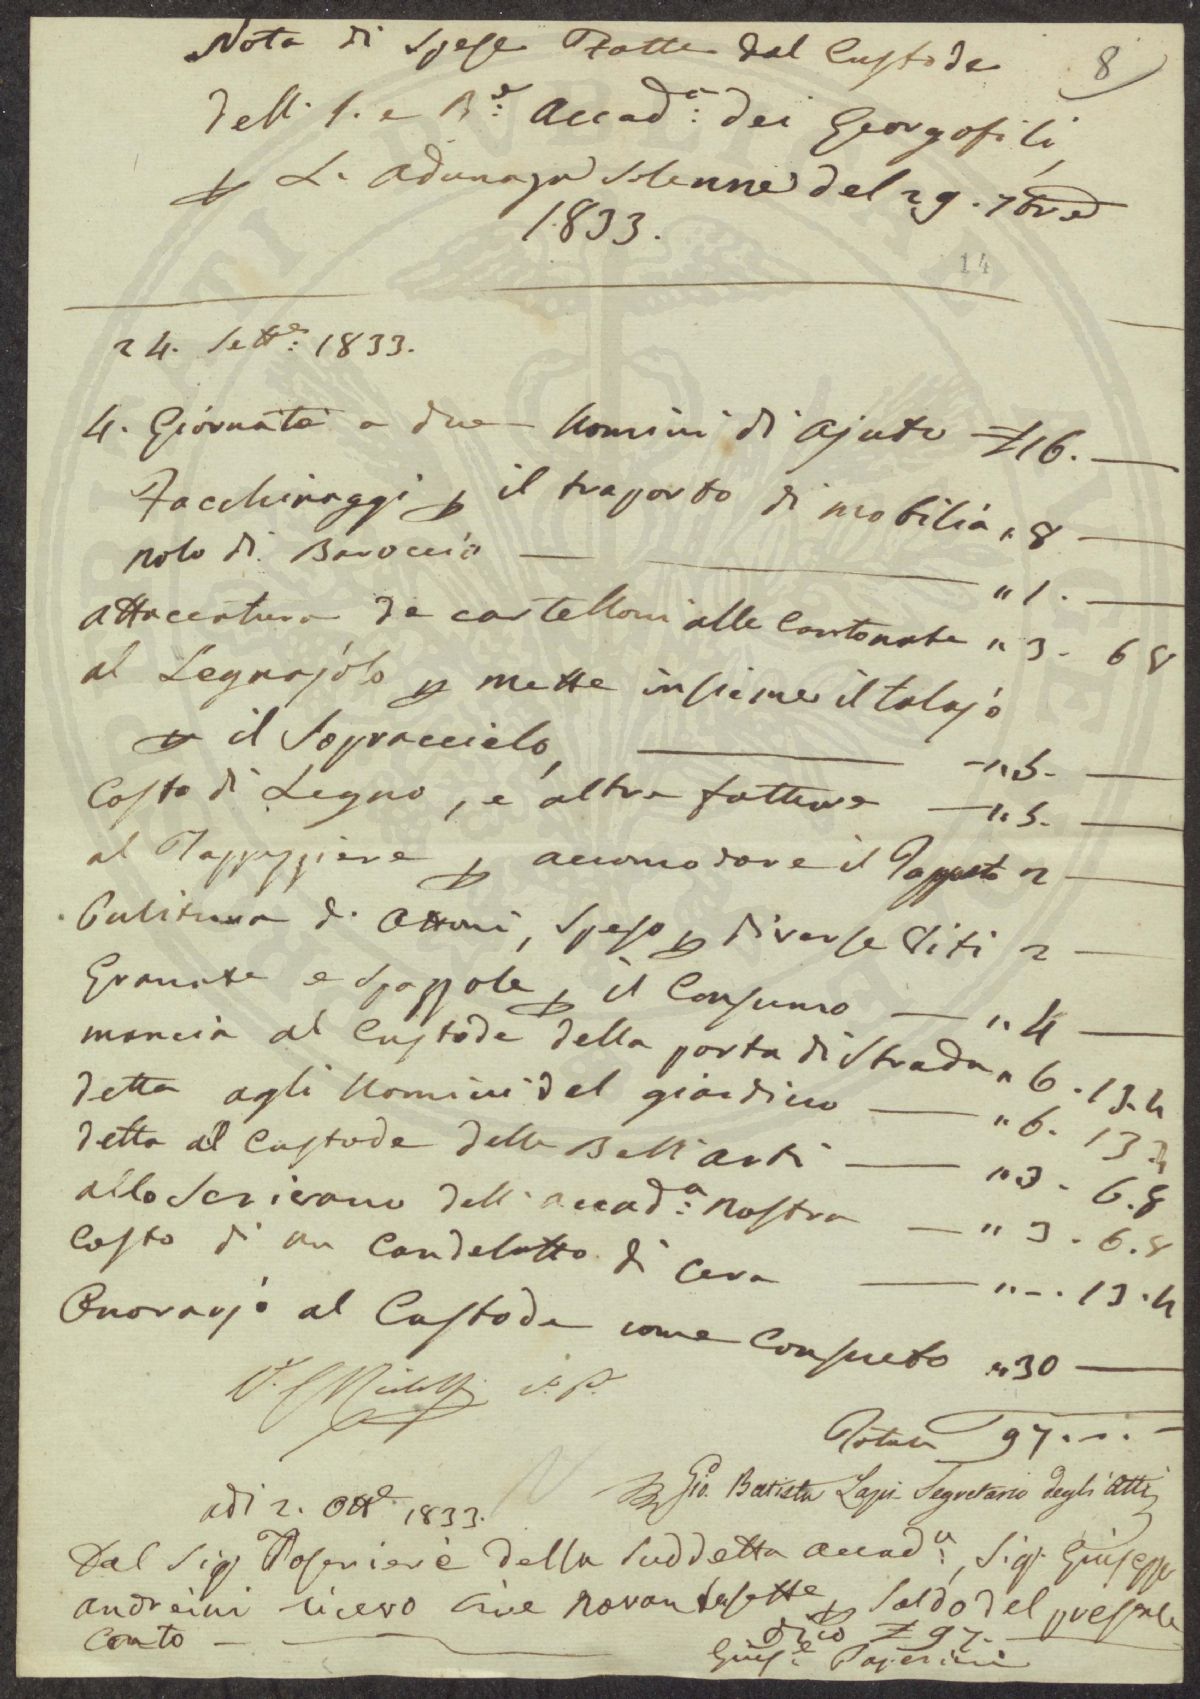 Nota di Spese Fatte dal Custode
8
dell' I. e R.e Accad.a dei Georgofili
p La Adunanza Solenne del 29. 7bre
1833.
14
24. Sett.e 1833.
4. Giornate a due Uomini di Ajuto £ 16. —
Facchinaggi p il traporto di mobilia " 8 —
Nolo di Baroccio — " 1. —
Attaccatura de cartelloni alle Cantonate " 3. 6 8
al Legnajolo p mette insieme il Telajo
p il Sopraccielo, — " 5. —
Costo di Legno, e altre fatture — " 5. —
al Tappezziere p accomodare il Tappeto 2 —
Pulitura di Ottoni, Speso p diverse Viti 2 —
Granate e Spazzole p il Consumo — " 4 —
mancia al Custode della porta di Strada " 6. 13. 4
detta agli Uomini del giardino — " 6. 13. 4
detta al Custode delle Bell'arti — " 3. 6. 8
allo Scrivano dell' Accad.a Nostra — " 3. 6. 8
Costo di un Candelotto di Cera — " -. 13. 4
Onorarjo al Custode come Consueto " 30 —
Totale 97. -. -
Gio. Batista Lapi Segretario degli Atti
adi 2. Ott.e 1833.
Dal Sig.r Tesoriere della Suddetta Accad.a, Sig.r Giuseppe
Andreini ricevo Lire Novantasette p Saldo del presente
Conto — dico £ 97. —
Gius.e